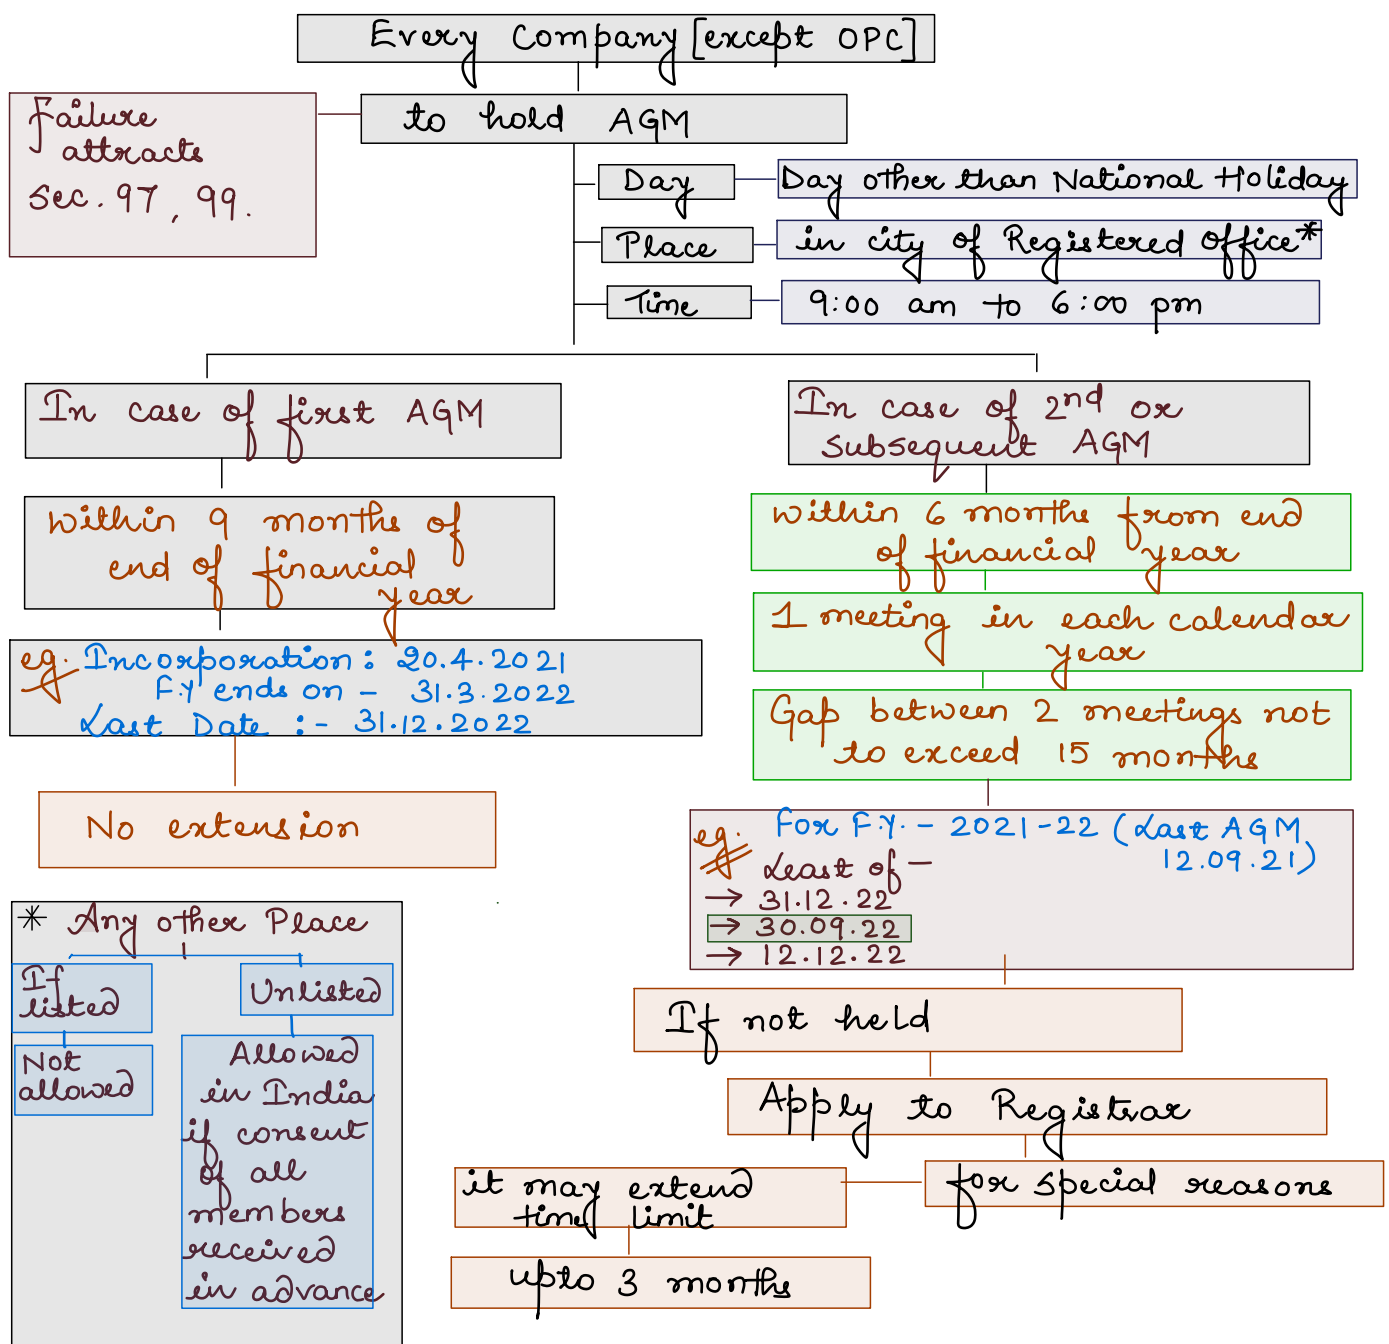 Every Company [except OPC]
to hold AGM
Failure
attracts
Sec. 97, 99.
Day
Day other than National Holiday
Place
in city of Registered office*
Time
9:00 am to 6:00 pm
In case of first AGM
within 9 months of
end of financial
year
eg. Incorporation: 20.4.2021
F.Y ends on - 31.3.2022
Last Date :- 31.12.2022
No extension
In case of 2nd or
subsequent AGM
within 6 months from end
of financial year
1 meeting in each calendar
year
Gap between 2 meetings not
to exceed 15 months
eg. For F.Y. - 2021-22 (Last AGM
12.09.21)
Least of -
→ 31.12.22
→ 30.09.22
→ 12.12.22
If not held
Apply to Registrar
for special reasons
it may extend
time limit
upto 3 months
* Any other Place
If
listed
Not
allowed
Unlisted
Allowed
in India
if consent
of all
members
received
in advance